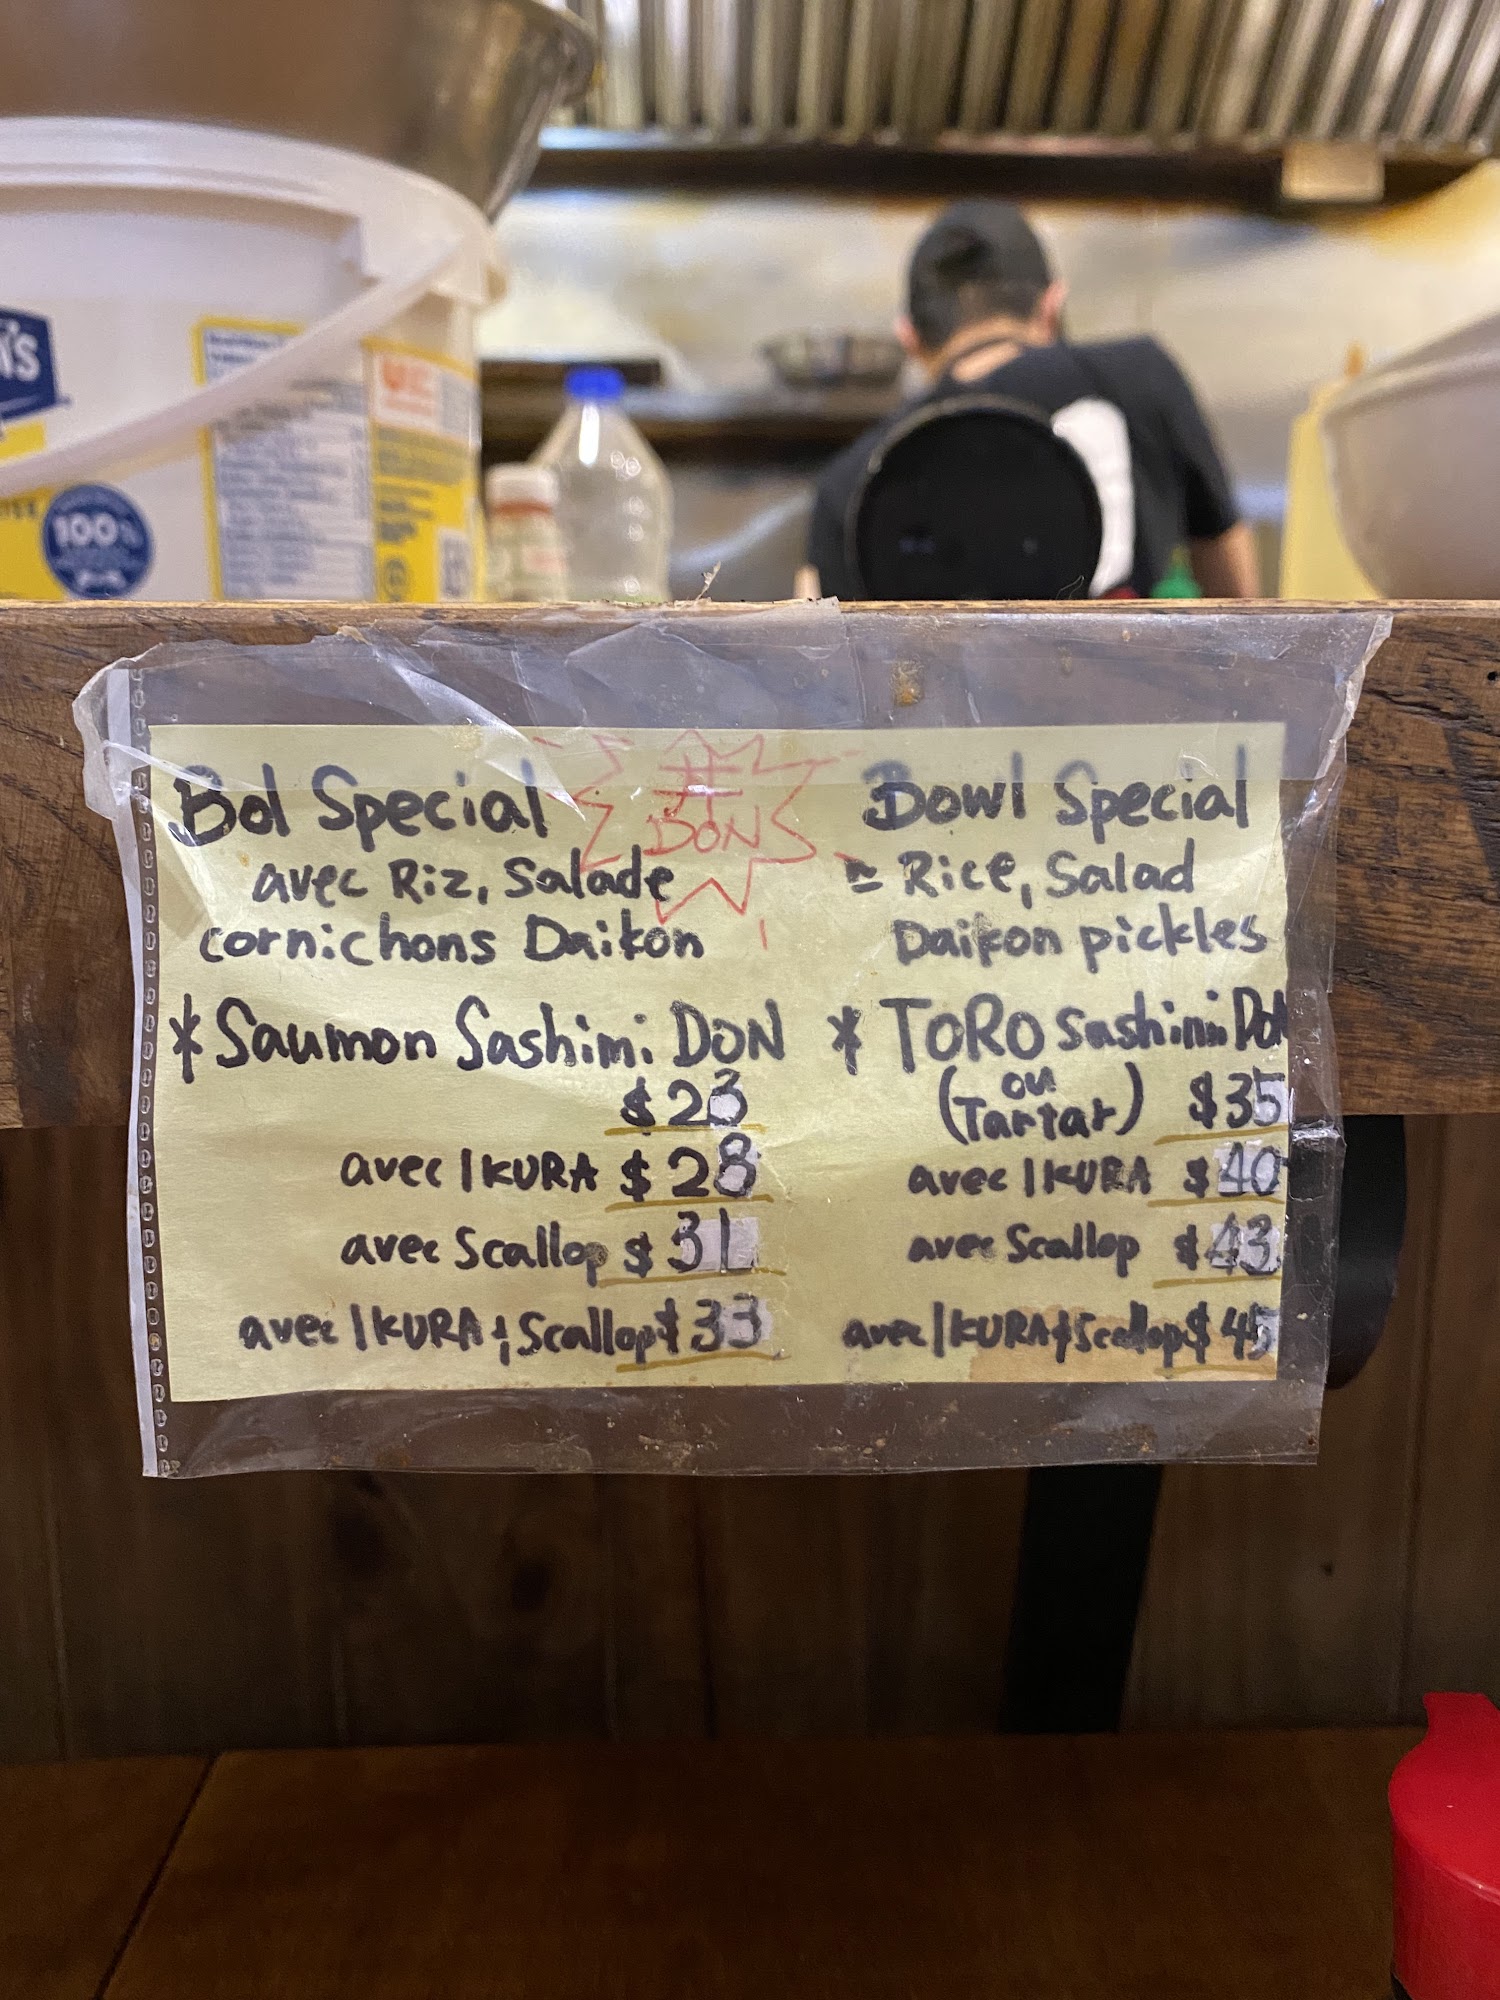 's
100%
Bol Special
avec Riz, Salade
cornichons Daikon
丼
DON
Bowl Special
Rice, Salad
Daikon pickles
* Saumon Sashimi DON
$23
avec IKURA $28
avec Scallop $31
avec IKURA & Scallop $33
* TORO Sashimi DON
(ou Tartar) $35
avec IKURA $40
avec Scallop $43
avec IKURA & Scallop $45